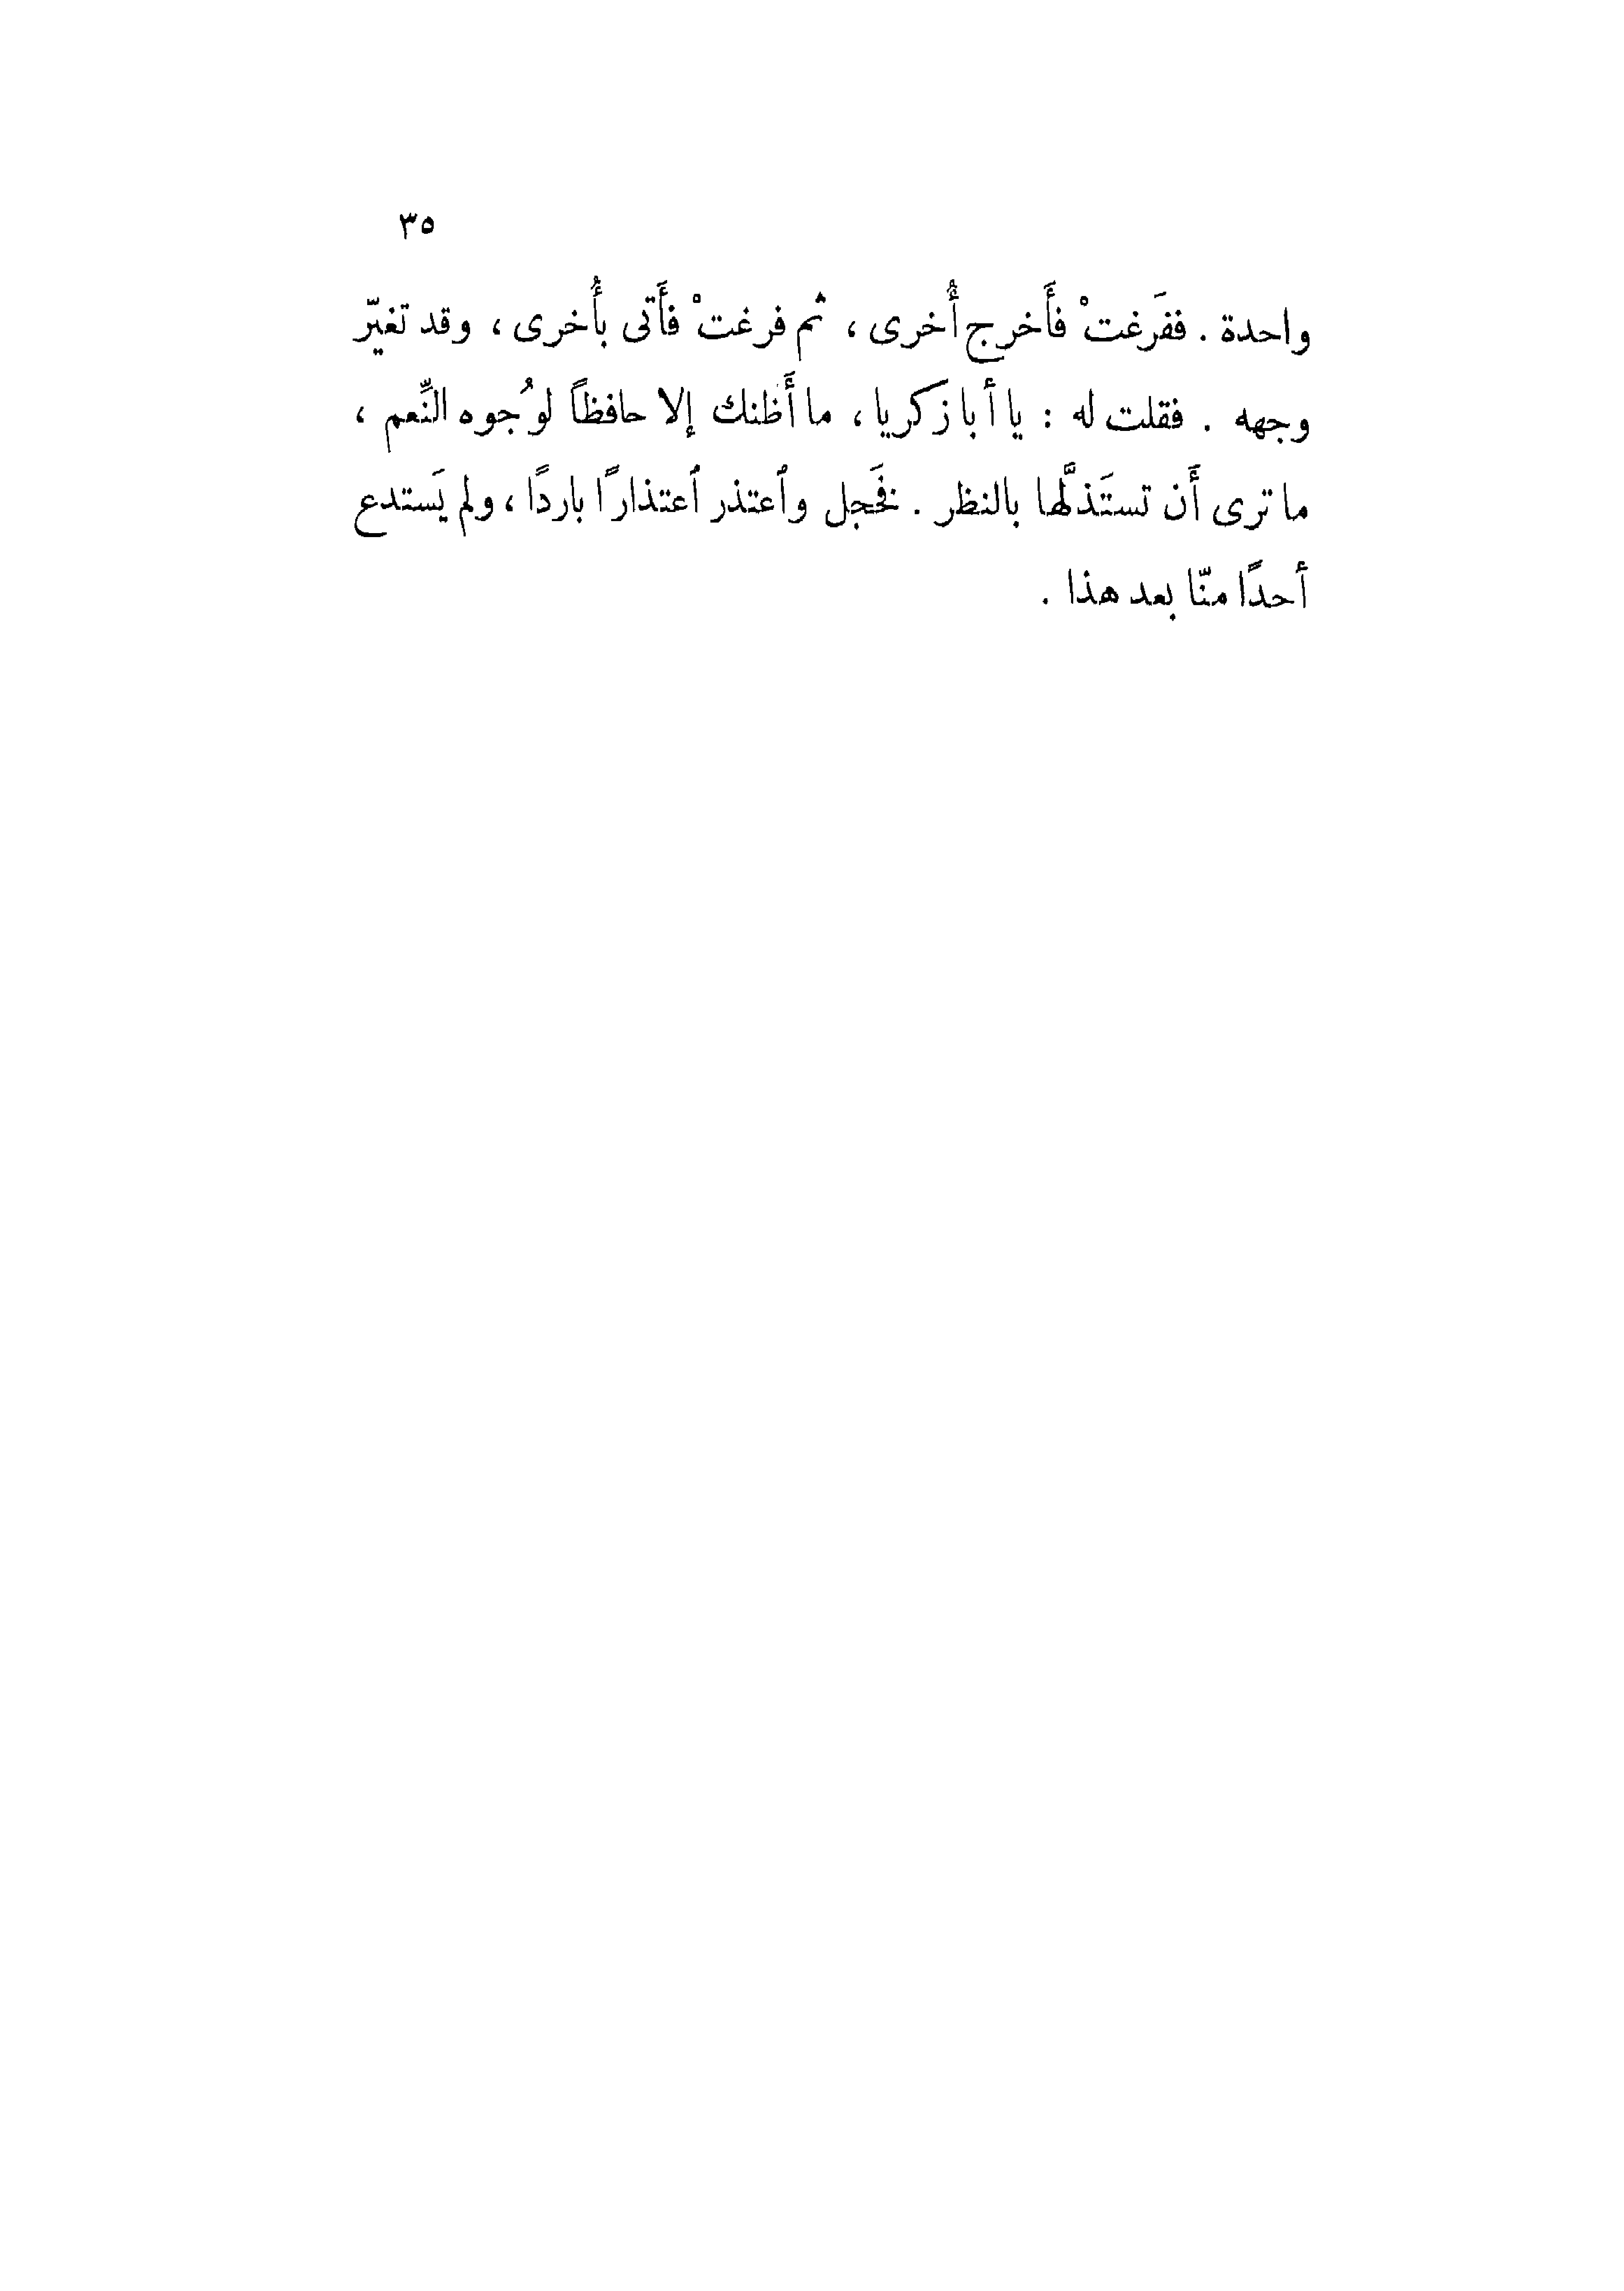 ٣٥
واحدة . ففَرغتْ فأَخرج أُخرى ، ثم فرغتْ فأَتى بأُخرى ، وقد تغيّر
وجهه . فقلت له : يا أبا زكريا ، ما أَظنك إلا حافظاً لوُجوه النِّعم ،
ما ترى أَن تستَذلَّها بالنظر . فخَجل وٱعتذر ٱعتذارًا باردًا ، ولم يَستدع
أحدًا منّا بعد هذا .